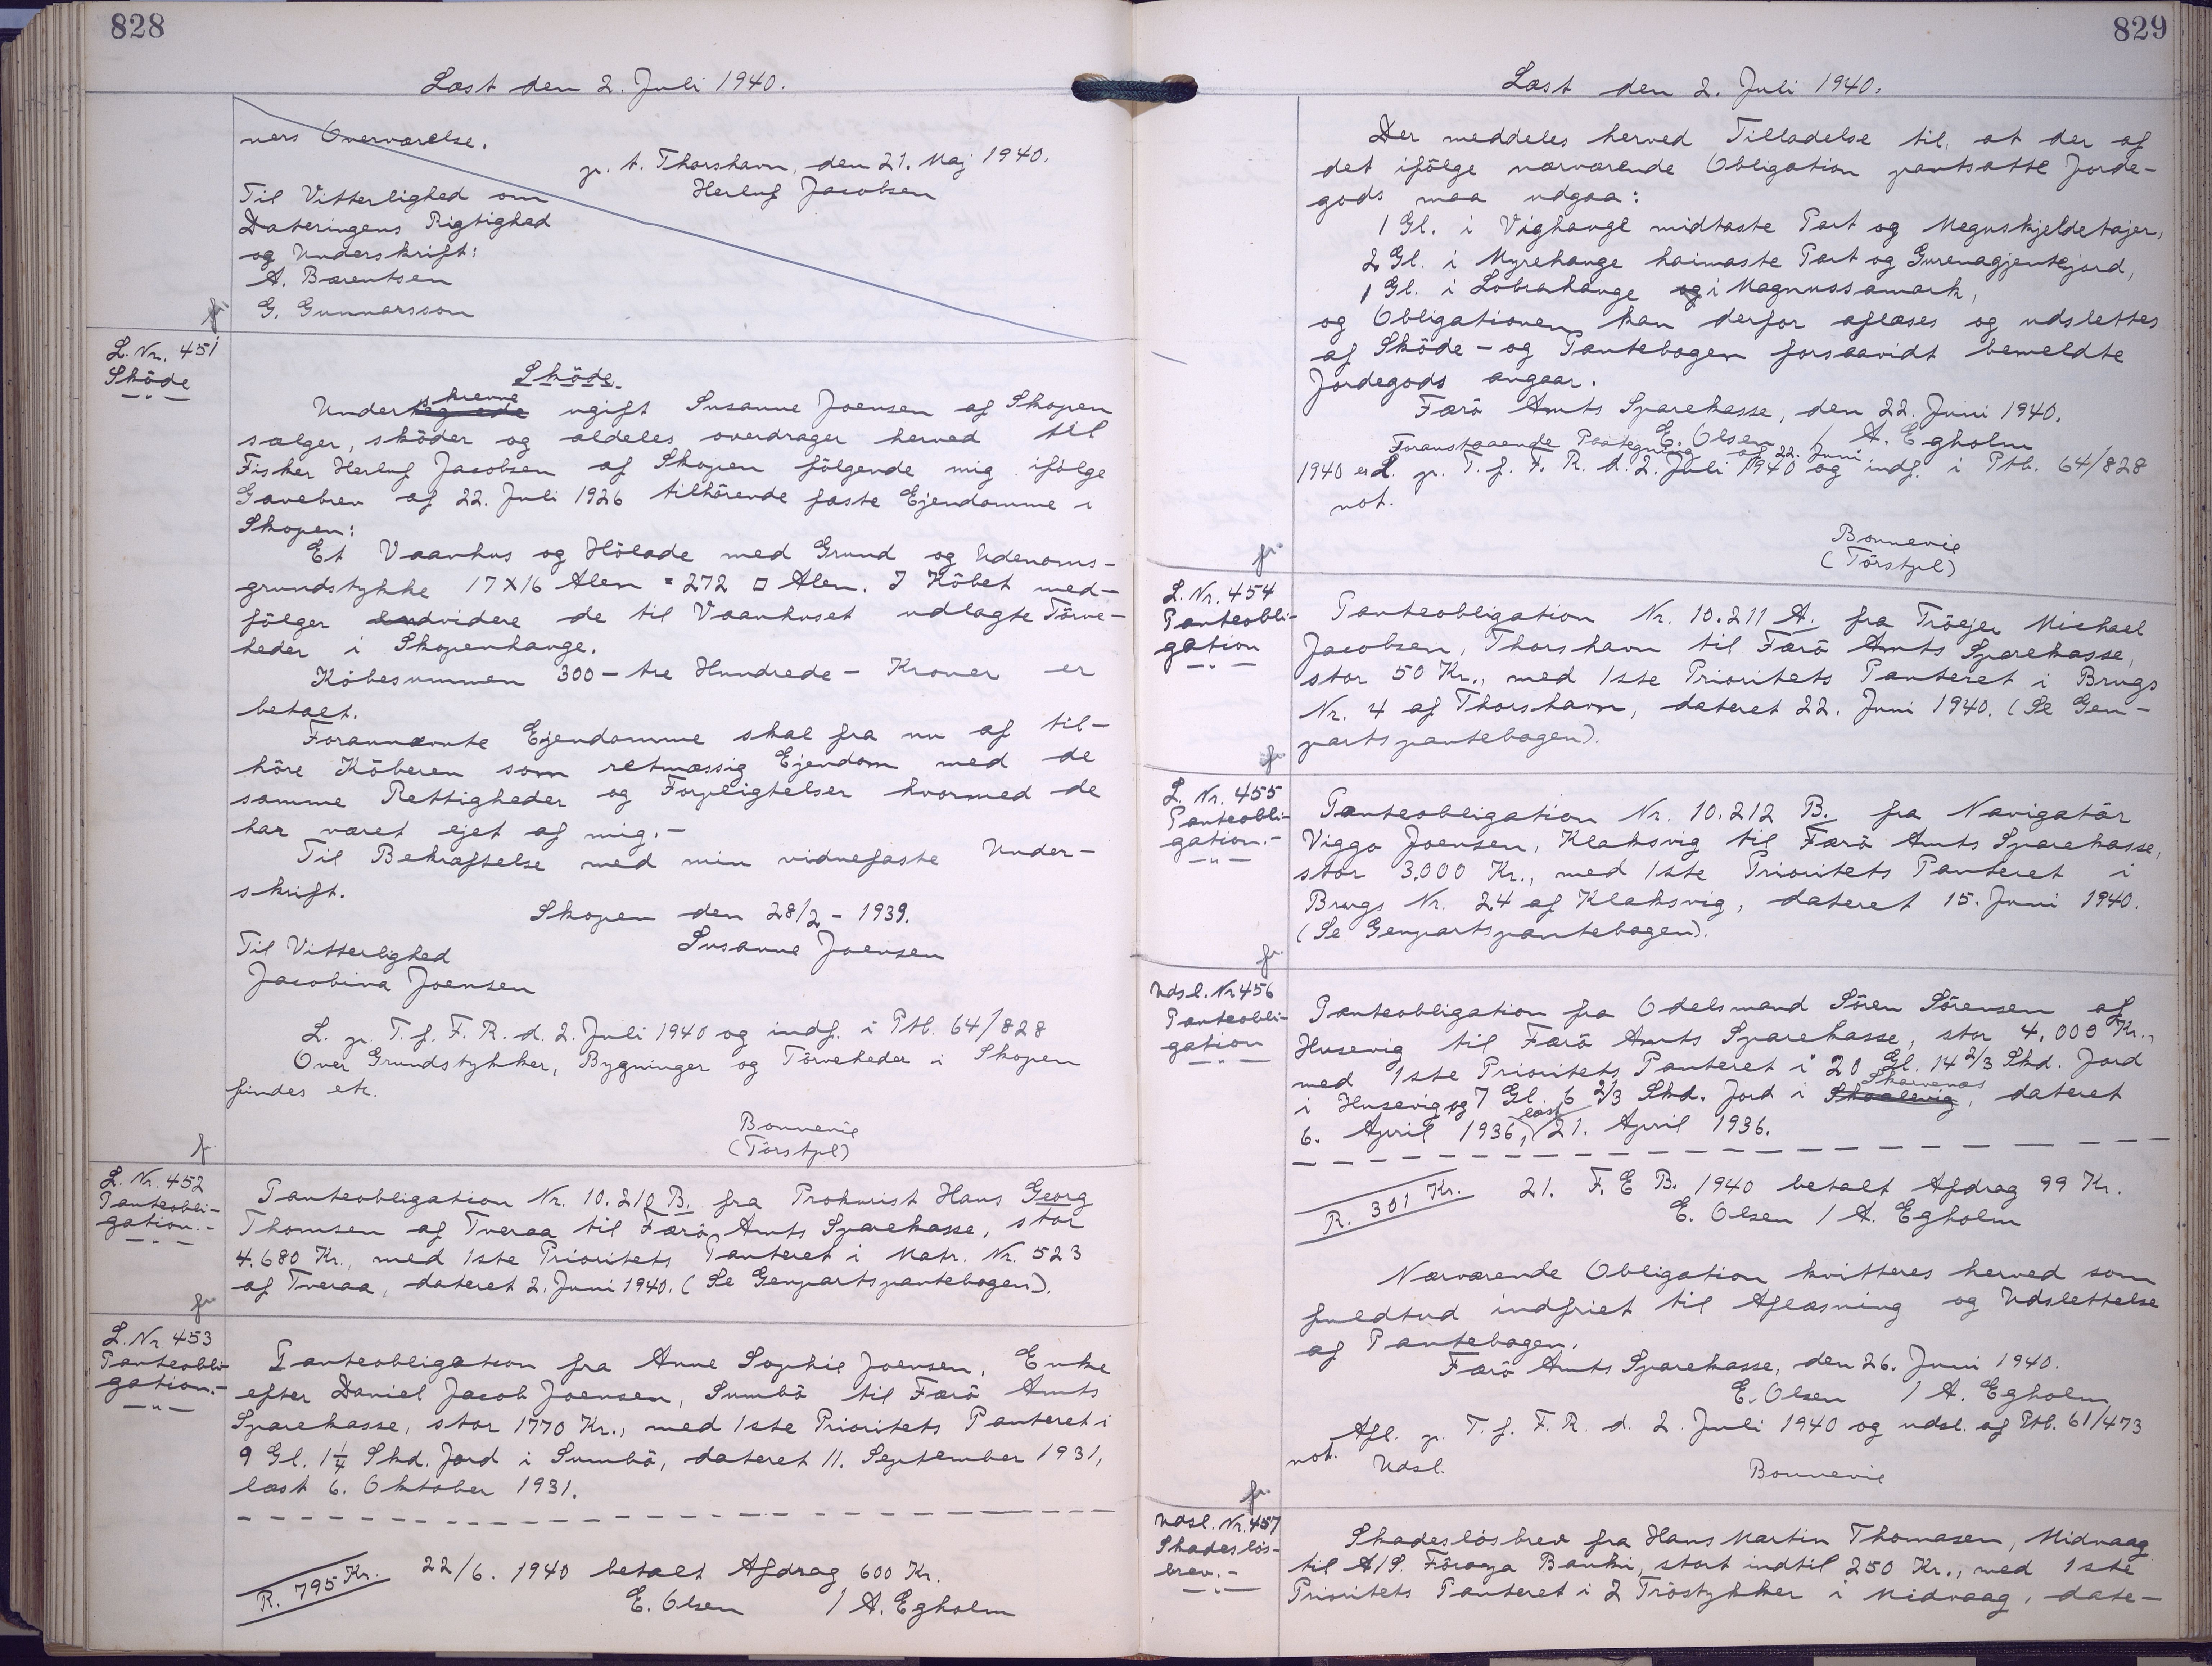 828
Læst den 2. Juli 1940.
ners Overværelse.
p. t. Thorshavn, den 21. Maj 1940.
Herluf Jacobsen
Til Vitterlighed om
Dateringens Rigtighed
og Underskrift:
A. Bærentsen
G. Gunnarsson
fr.
L. Nr. 451
Sköde
Sköde.
Underskrevne ugift Susanne Joensen af Skopen
sælger, sköder og aldeles overdrager herved til
Fisker Herluf Jacobsen af Skopen fölgende mig ifölge
Gavebrev af 22. Juli 1926 tilhörende faste Ejendomme i
Skopen:
Et Vaanhus og Hölade med Grund og Udenoms-
grundstykke 17 X 16 Alen = 272 □ Alen. I Köbet med-
fölger endvidere de til Vaanhuset udlagte Törve-
heder i Skopenhauge.
Köbesummen 300 - tre Hundrede - Kroner er
betalt.
Forannævnte Ejendomme skal fra nu af til-
höre Köberen som retmæssig Ejendom med de
samme Rettigheder og Forpligtelser hvormed de
har været ejet af mig.-
Til Bekræftelse med min vidnefaste Under-
skrift.
Skopen den 28/2 - 1939.
Susanne Joensen
Til Vitterlighed
Jacobina Joensen
L. p. T. f. F. R. d. 2. Juli 1940 og indf. i Ptb. 64/828
Over Grundstykker, Bygninger og Törveheder i Skopen
findes etc.
Bonnevie
(Törstpl)
fr.
L. Nr. 452
Panteobli-
gation.-
Panteobligation Nr. 10.210 B. fra Prokurist Hans Georg
Thomsen af Tveraa til Færö Amts Sparekasse, stor
4.680 Kr., med 1ste Prioritets Panteret i Matr. Nr. 523
af Tveraa, dateret 2. Juni 1940. (Se Genpartspantebogen).
fr.
L. Nr 453
Panteobli-
gation.-
Panteobligation fra Anne Sophie Joensen, Enke
efter Daniel Jacob Joensen, Sumbö til Færö Amts
Sparekasse, stor 1770 Kr., med 1ste Prioritets Panteret i
9 Gl. 1 1/4 Skd. Jord i Sumbö, dateret 11. September 1931,
læst 6. Oktober 1931.
R. 795 Kr. 22/6. 1940 betalt Afdrag 600 Kr.
E. Olsen / A. Egholm
829
Læst den 2. Juli 1940.
Der meddeles herved Tilladelse til, at der af
det ifölge nærværende Obligation pantsatte Jorde-
gods maa udgaa:
1 Gl. i Vighauge midtaste Part og Megnskjeldetajer,
2 Gl. i Myrehauge haimaste Part og Gurenagjentejord,
1 Gl. i Löbrahauge og i Magnussamark,
og Obligationen kan derfor aflæses og udslettes
af Sköde- og Pantebogen forsaavidt bemeldte
Jordegods angaar.
Færö Amts Sparekasse, den 22. Juni 1940.
E. Olsen / A. Egholm
Foranstaaende Paategning af 22. Juni
1940 er L. p. T. f. F. R. d. 2. Juli 1940 og indf. i Ptb. 64/828
not.
Bonnevie
(Törstpl)
fr.
L. Nr. 454
Panteobli-
gation
Panteobligation Nr. 10.211 A. fra Tröejer Michael
Jacobsen, Thorshavn til Færö Amts Sparekasse,
stor 50 Kr., med 1ste Prioritets Panteret i Brugs
Nr. 4 af Thorshavn, dateret 22. Juni 1940. (Se Gen-
partspantebogen).
fr.
L. Nr. 455
Panteobli-
gation.-
Panteobligation Nr. 10.212 B. fra Navigatör
Viggo Joensen, Klaksvig til Færö Amts Sparekasse,
stor 3.000 Kr., med 1ste Prioritets Panteret i
Brugs Nr. 24 af Klaksvig, dateret 15. Juni 1940.
(Se Genpartspantebogen).
fr.
Udsl. Nr 456
Panteobli-
gation
Panteobligation fra Odelsmand Sören Sörensen af
Husevig til Færö Amts Sparekasse, stor 4.000 Kr.,
med 1ste Prioritets Panteret i 20 Gl. 14 2/3 Skd. Jord
i Husevig og 7 Gl. 6 2/3 Skd. Jord i Skaalevig Skarvenæs, dateret
6. April 1936, læst 21. April 1936.
R. 301 Kr. 21. F. E B. 1940 betalt Afdrag 99 Kr.
E. Olsen / A. Egholm
Nærværende Obligation kvitteres herved som
fuldtud indfriet til Aflæsning og Udslettelse
af Pantebogen.
Færö Amts Sparekasse, den 26. Juni 1940.
E. Olsen / A. Egholm
Afl. p. T. f. F. R. d. 2. Juli 1940 og udsl. af Ptb. 61/473
not.
Udsl. Bonnevie
fr.
Udsl. Nr. 457
Skadeslös-
brev.-
Skadeslösbrev fra Hans Martin Thomasen, Midvaag
til A/S. Föroya Banki, stort indtil 250 Kr., med 1ste
Prioritets Panteret i 2 Tröstykker i Midvaag, date-